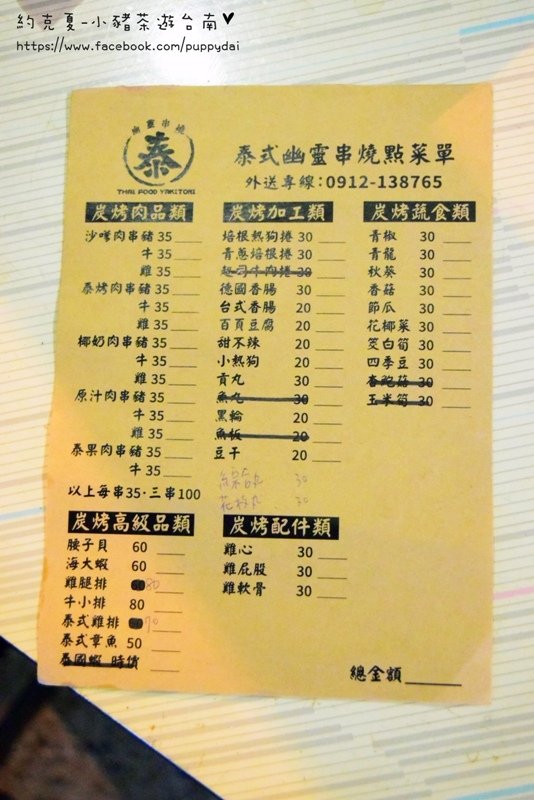 約克夏-小豬茶遊台南♥
https://www.facebook.com/puppydai
幽靈串燒
泰
THAI FOOD YAKITORI
泰式幽靈串燒點菜單
外送專線：0912-138765
炭烤肉品類
沙嗲肉串豬 35
牛 35
雞 35
泰烤肉串豬 35
牛 35
雞 35
椰奶肉串豬 35
牛 35
雞 35
原汁肉串豬 35
牛 35
雞 35
泰果肉串豬 35
牛 35
以上每串35·三串100
炭烤高級品類
腰子貝 60
海大蝦 60
雞腿排 80
牛小排 80
泰式雞排 70
泰式章魚 50
泰國蝦 時價
炭烤加工類
培根熱狗捲 30
青蔥培根捲 30
起司牛肉捲 30
德國香腸 30
台式香腸 20
百頁豆腐 20
甜不辣 20
小熱狗 20
貢丸 30
魚丸 30
黑輪 20
魚板 20
豆干 20
30
花枝丸 30
炭烤配件類
雞心 30
雞屁股 30
雞軟骨 30
炭烤蔬食類
青椒 30
青龍 30
秋葵 30
香菇 30
節瓜 30
花椰菜 30
筊白筍 30
四季豆 30
杏鮑菇 30
玉米筍 30
總金額